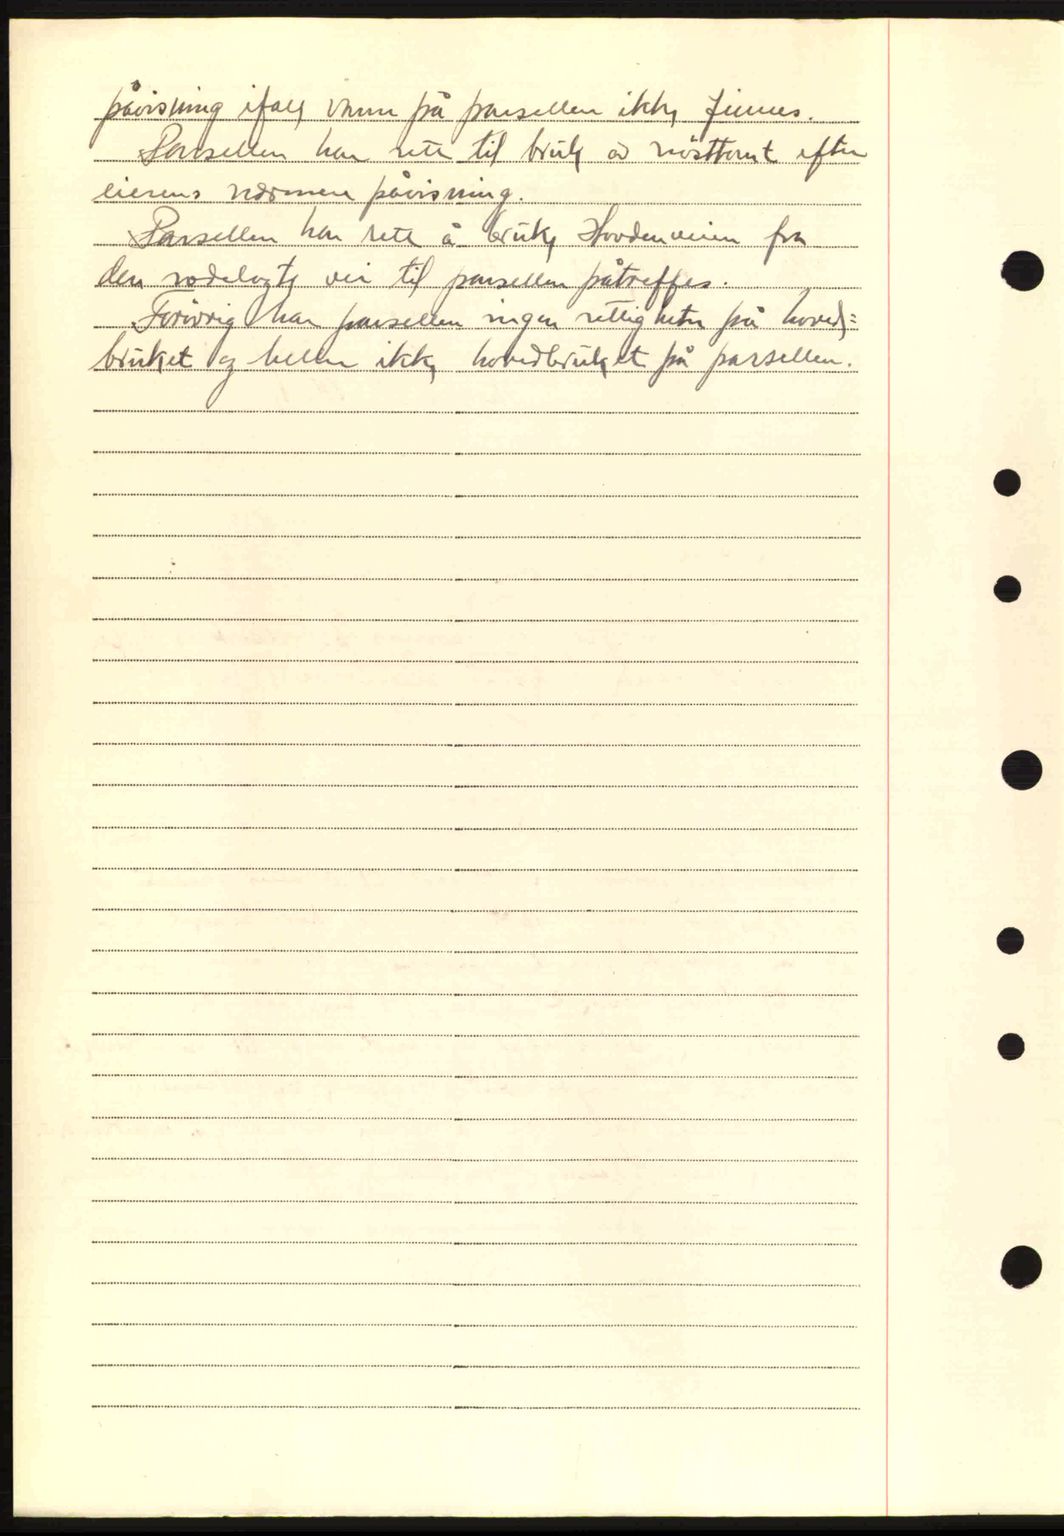 påvisning ifall vann på parsellen ikke finnes.
Parsellen har rett til bruk av nøsttomt efter
eierens nærmere påvisning.
Parsellen har rett å bruke Hovdenveien fra
den rodelagte vei til parsellen påtreffes.
Forøvrig har parsellen ingen rettigheter på hoved=
bruket og heller ikke hovedbruket på parsellen.